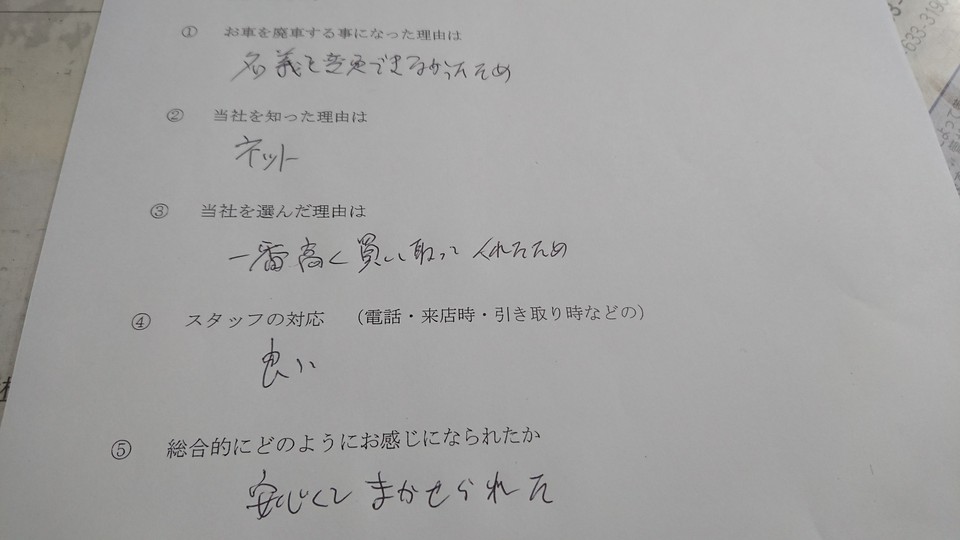 ① お車を廃車する事になった理由は
名義を変更できなかったため
② 当社を知った理由は
ネット
③ 当社を選んだ理由は
一番高く買い取ってくれたため
④ スタッフの対応 （電話・来店時・引き取り時などの）
良い
⑤ 総合的にどのようにお感じになられたか
安心して まかせられた